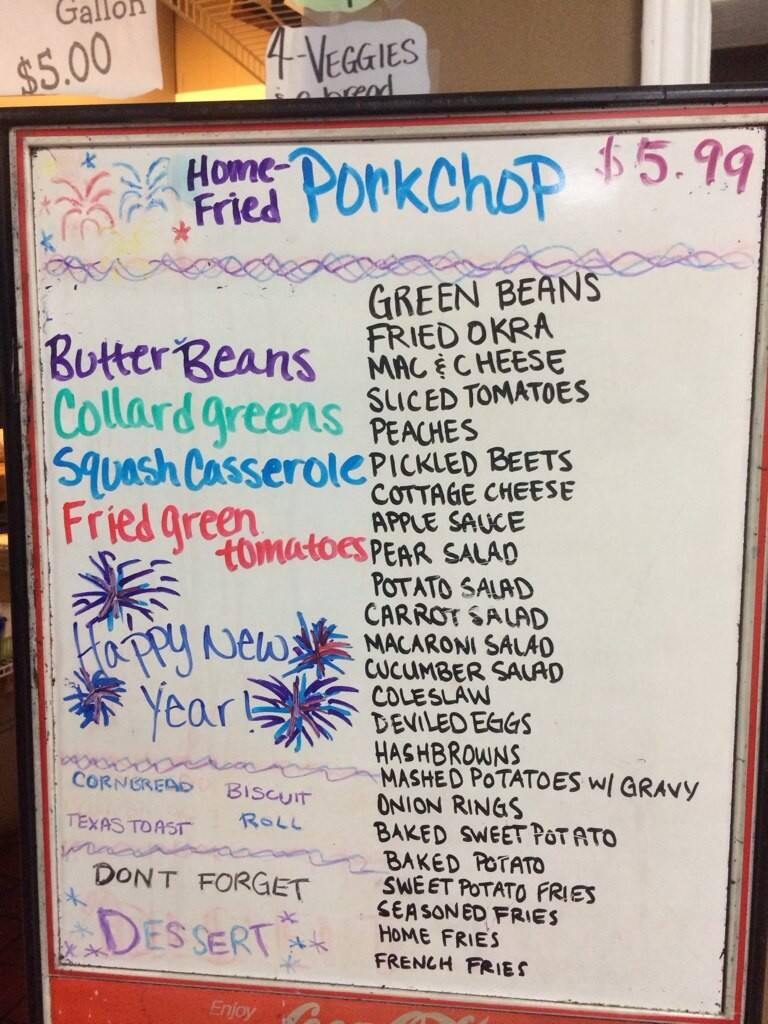 Gallon
$5.00
4-VEGGIES
Home-Fried PorkChop $5.99
Butter Beans
Collard greens
Squash Casserole
Fried green
tomatoes
Happy New
Year!
CORNBREAD BISCUIT
TEXAS TOAST ROLL
DONT FORGET
DESSERT
GREEN BEANS
FRIED OKRA
MAC & CHEESE
SLICED TOMATOES
PEACHES
PICKLED BEETS
COTTAGE CHEESE
APPLE SAUCE
PEAR SALAD
POTATO SALAD
CARROT SALAD
MACARONI SALAD
CUCUMBER SALAD
COLESLAW
DEVILED EGGS
HASHBROWNS
MASHED POTATOES W/ GRAVY
ONION RINGS
BAKED SWEET POTATO
BAKED POTATO
SWEET POTATO FRIES
SEASONED FRIES
HOME FRIES
FRENCH FRIES
Enjoy